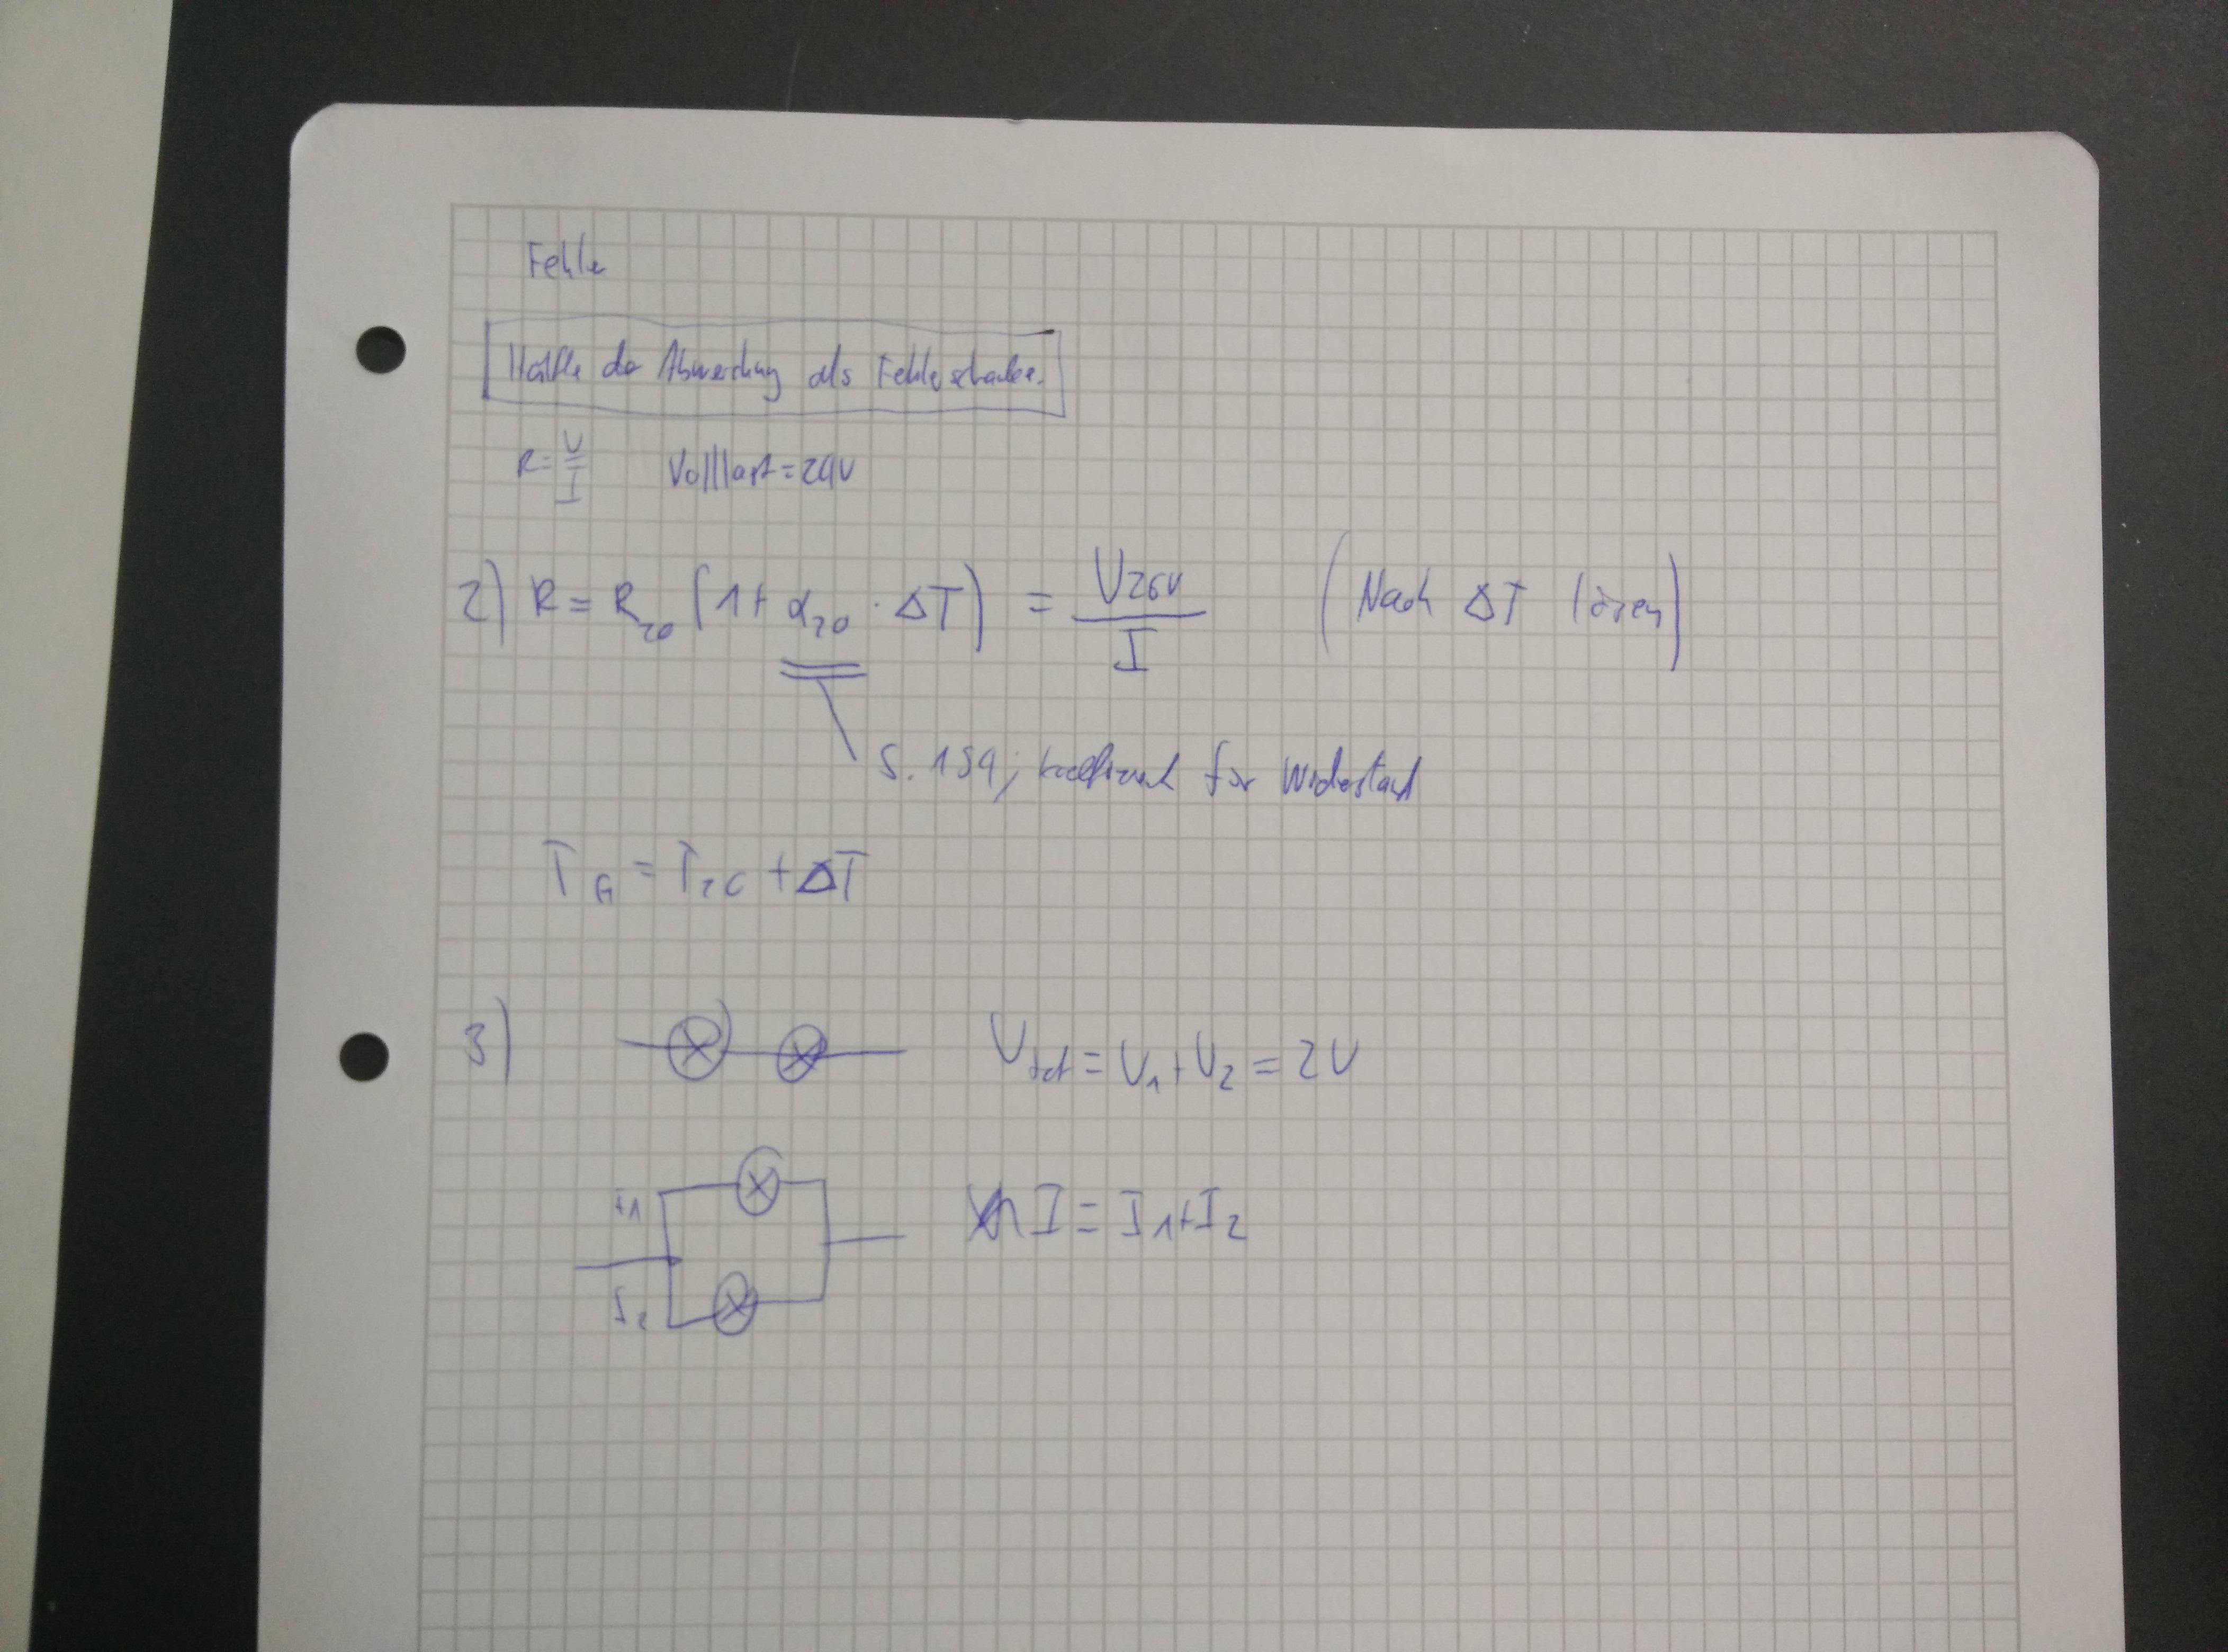 Fehler
Hälfte der Abweichung als Fehlerschranke.
R = U/I Volllast = 24V
2) R = R₂₀ (1 + α₂₀ · ΔT) = U26V / I (Nach ΔT lösen)
S. 154; Koeffizient für Widerstand
T_G = T₂₀ + ΔT
3) U_tot = U₁ + U₂ = 2U
I1
I = I₁ + I₂
I₂